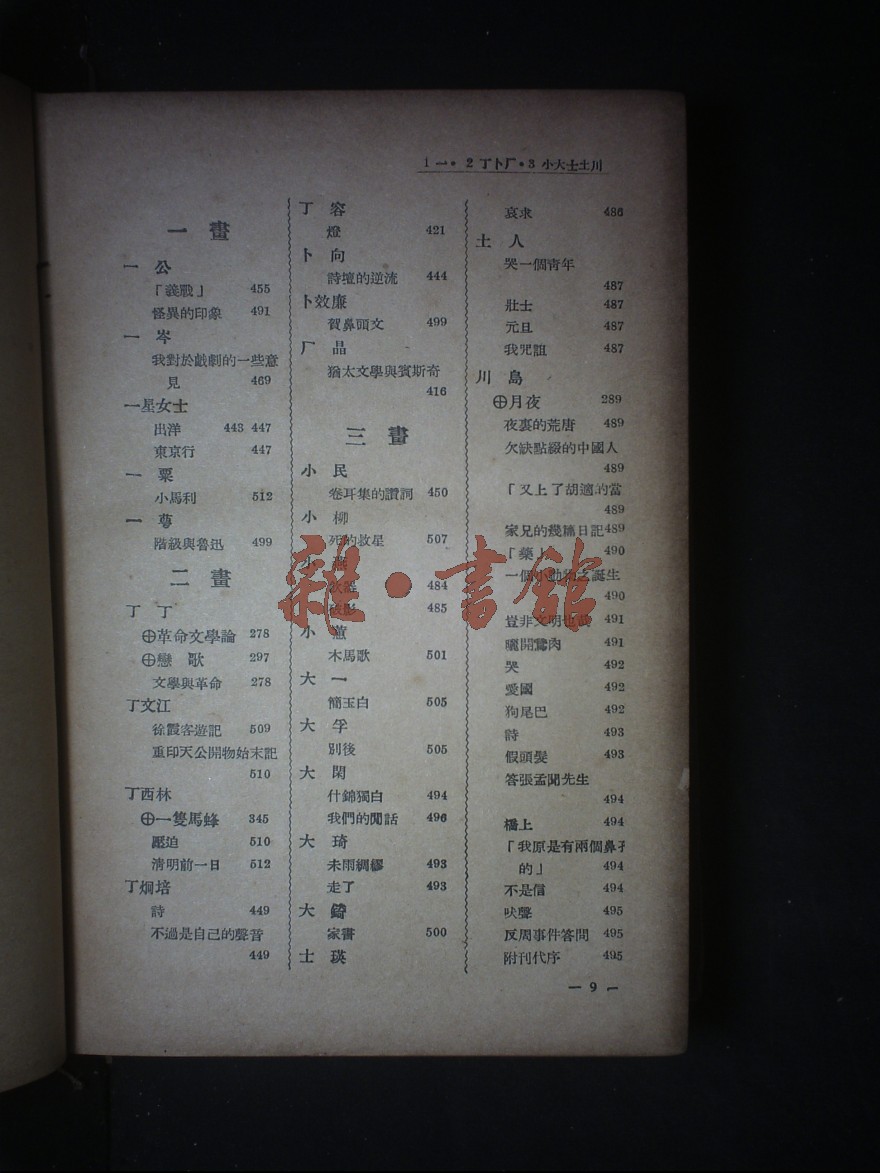 1 一•2 丁卜厂•3 小大士土川
一 畫
一 公
「義戰」 455
怪異的印象 491
一 岑
我對於戲劇的一些意
見 469
一星女士
出洋 443 447
東京行 447
一 粟
小馬利 512
一 萼
階級與魯迅 499
二 畫
丁 丁
⊕革命文學論 278
⊕戀 歌 297
文學與革命 278
丁文江
徐霞客遊記 509
重印天公開物始末記
510
丁西林
⊕一隻馬蜂 345
壓迫 510
淸明前一日 512
丁烱培
詩 449
不過是自己的聲音
449
丁 容
燈 421
卜 向
詩壇的逆流 444
卜效廉
賀鼻頭文 499
厂 晶
猶太文學與賓斯奇
416
三 畫
小 民
卷耳集的讚詞 450
小 柳
死的救星 507
小 燕
484
485
小 蕙
木馬歌 501
大 一
簡玉白 505
大 孚
別後 505
大 閑
什錦獨白 494
我們的閒話 496
大 琦
未雨綢繆 493
走了 493
大 鐈
家書 500
士 瑛
哀求 486
土 人
哭一個靑年
487
壯士 487
元旦 487
我咒詛 487
川 島
⊕月夜 289
夜裏的荒唐 489
欠缺點綴的中國人
489
「又上了胡適的當
489
家兄的幾篇日記489
「藥」 490
一個小動物之誕生
490
豈非文明也哉 491
曬開鶯肉 491
哭 492
愛國 492
狗尾巴 492
詩 493
假頭髮 493
答張孟聞先生
494
橋上 494
「我原是有兩個鼻孔
的」 494
不是信 494
吠聲 495
反周事件答問 495
附刊代序 495
— 9 —
雜•書館